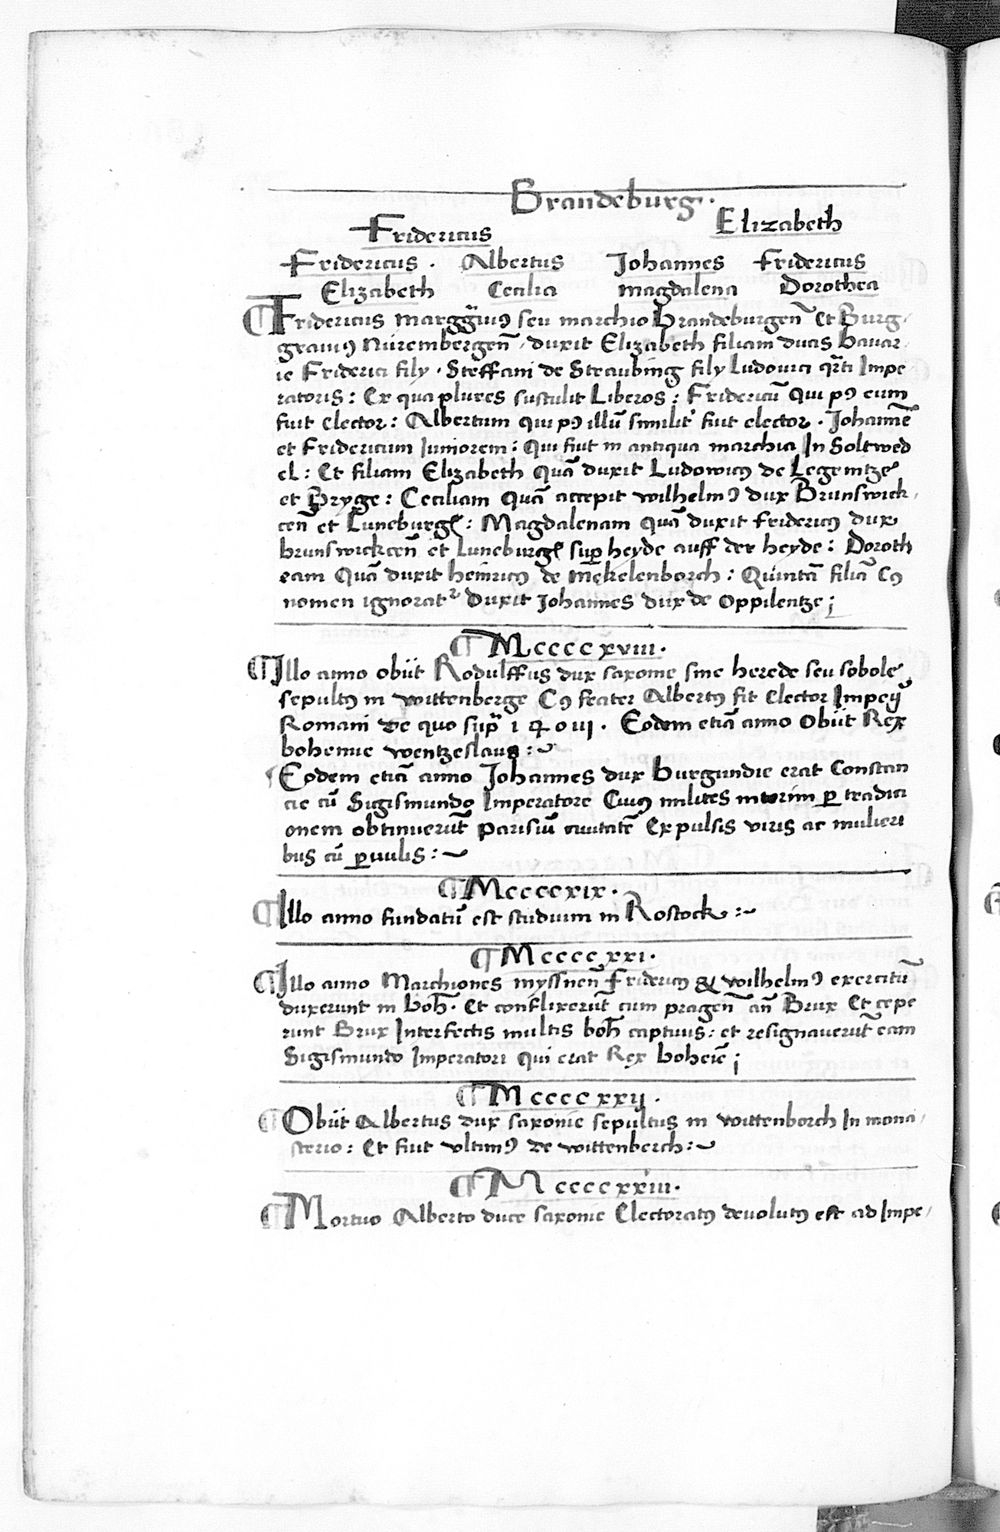 Brandeburg.
Fridericus Elizabeth
Fridericus . Albertus Johannes Fridericus
Elizabeth Cecilia magdalena Dorothea
¶ Fridericus marggͣuiꝰ seu marchio Brandeburgen̄ Et Burg-
grauiꝰ Nüremberge͞n , duxit Elizabeth filiam ducis bauar
ie Friderici filij . Steffani de Straubing filij Ludouici qͣrti Impe
ratoris : Ex qua plures sustulit Liberos : Fridericū Qui pꝰ eum
fuit elector : Albertum qui pꝰ illū similit' fuit elector . Johannē
et Fridericum Iuniorem : Qui fuit in antiqua marchia In Soltwed
el : Et filiam Elizabeth Quā duxit Ludowicꝰ de Legenitze
et Bryge : Ceciliam Quā accepit wilhelmꝰ dux Brunswick-
cen̄ et Luneburgꝭ : Magdalenam quā duxit fridericꝰ dux
brunswickcen̄ et luneburgꝭ suꝑ heyde auff der heyde : Doroth
eam Quā duxit heinricꝰ de mēkelenborch : Quintā filiā Cꝰ
nomen ignoratᵘʳ Duxit Johannes dux de Oppilentze ;
¶ Mccccxviii.
¶ Illo anno obiit Rodulffus dux saxonie sine herede seu sobole
sepultꝰ in wittenberge Cꝰ frater Albertꝰ fit elector Imperij
Romani de quo supͣ 1406 . Eodem etiā anno Obiit Rex
bohemie wentzeslaus :~
Eodem etiā anno Johannes dux burgundie erat Constan
cie cū Sigismundo Imperatore Cuiꝰ milites interim ꝑ tradici
onem obtinuerūt parisiū ciuitatē Expulsis viris ac mulieri
bus cū ꝑuulis :~
¶ Mccccxix.
¶ Illo anno fundatū est studium in Rostock :~
¶ Mccccxxi.
¶ Illo anno Marchiones myssnen̄ Fridericꝰ & wilhelmꝰ exercitū
duxerunt in boh̄ . Et conflixerūt cum pragen̄ an̄ Brux Et cepe
runt Brux Interfectis multis boh̄ captiuis : et resignauerūt eam
Sigismundo Imperatori qui erat Rex boheiē ;
¶ Mccccxxij.
¶ Obiit Albertus dux saxonie sepultus in wittenborch In mona-
sterio : Et fuit vltimꝰ de wittenberch :~
¶ Mccccxxiii.
¶ Mortuo Alberto duce saxonie Electoratꝰ deuolutꝰ est ad Impe-